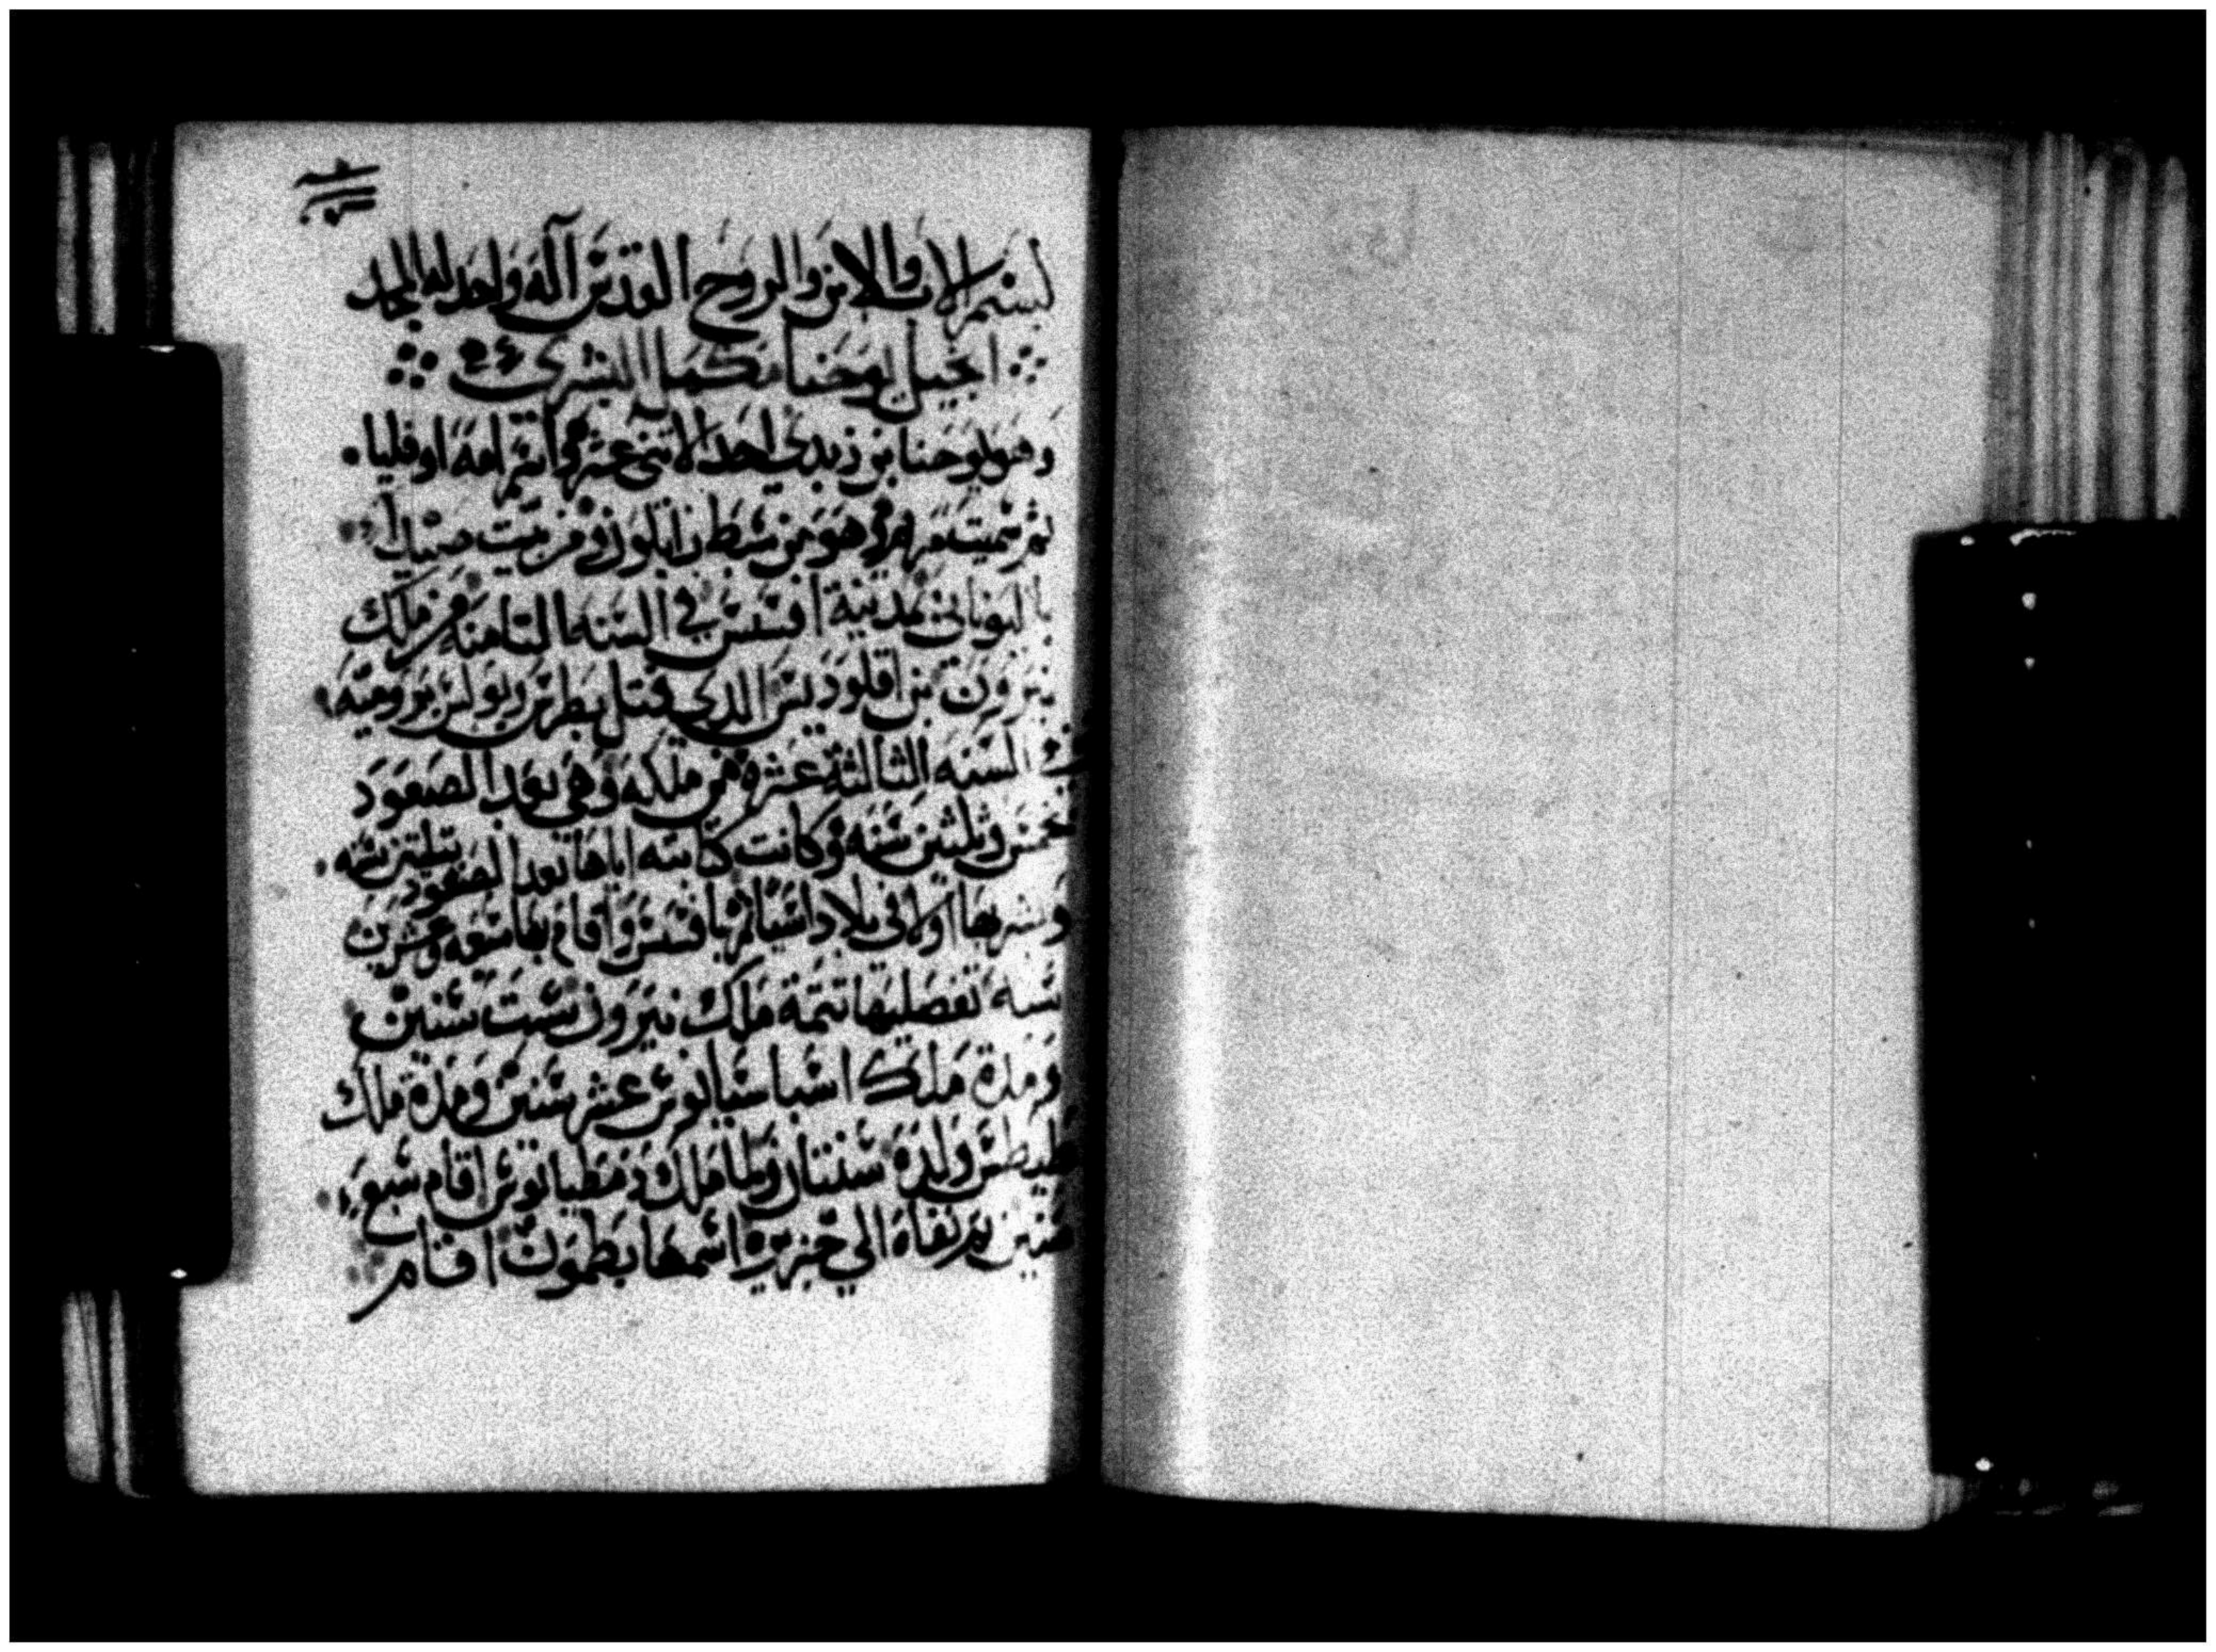 بسم الاب والابن والروح القدس اله واحد له المجد
انجيل يوحنا البشري
وهو يوحنا بن زبدي احد الاثني عشر واسم امه اوفليا
ثم سميت مريم وهو من سبط زابلون ومن بيت صيدا
باليوناني بمدينة افسس في السنه الثامنه من ملك
نيرون بن اقلوديس الدي قتل بطرس وبولس برومية
في السنه الثالثة عشرة من ملكه وهي بعد الصعود
بخمس وثلثين سنه وكانت كتابته اياها بعد الصعود بثلثين سنه
وبشر بها اولا في بلاد اسيا ثم بافسس واقام بها تسعه وعشرين
سنه تفصليها تتمة ملك نيرون ست سنين
ومدة ملك اسباسيانوس عشر سنين ومدة ملك
طيطس ولده سنتان ولما ملك دمطيانوس اقام سبع
سنين ثم نفاه الي جزيره اسمها بطمون اقام